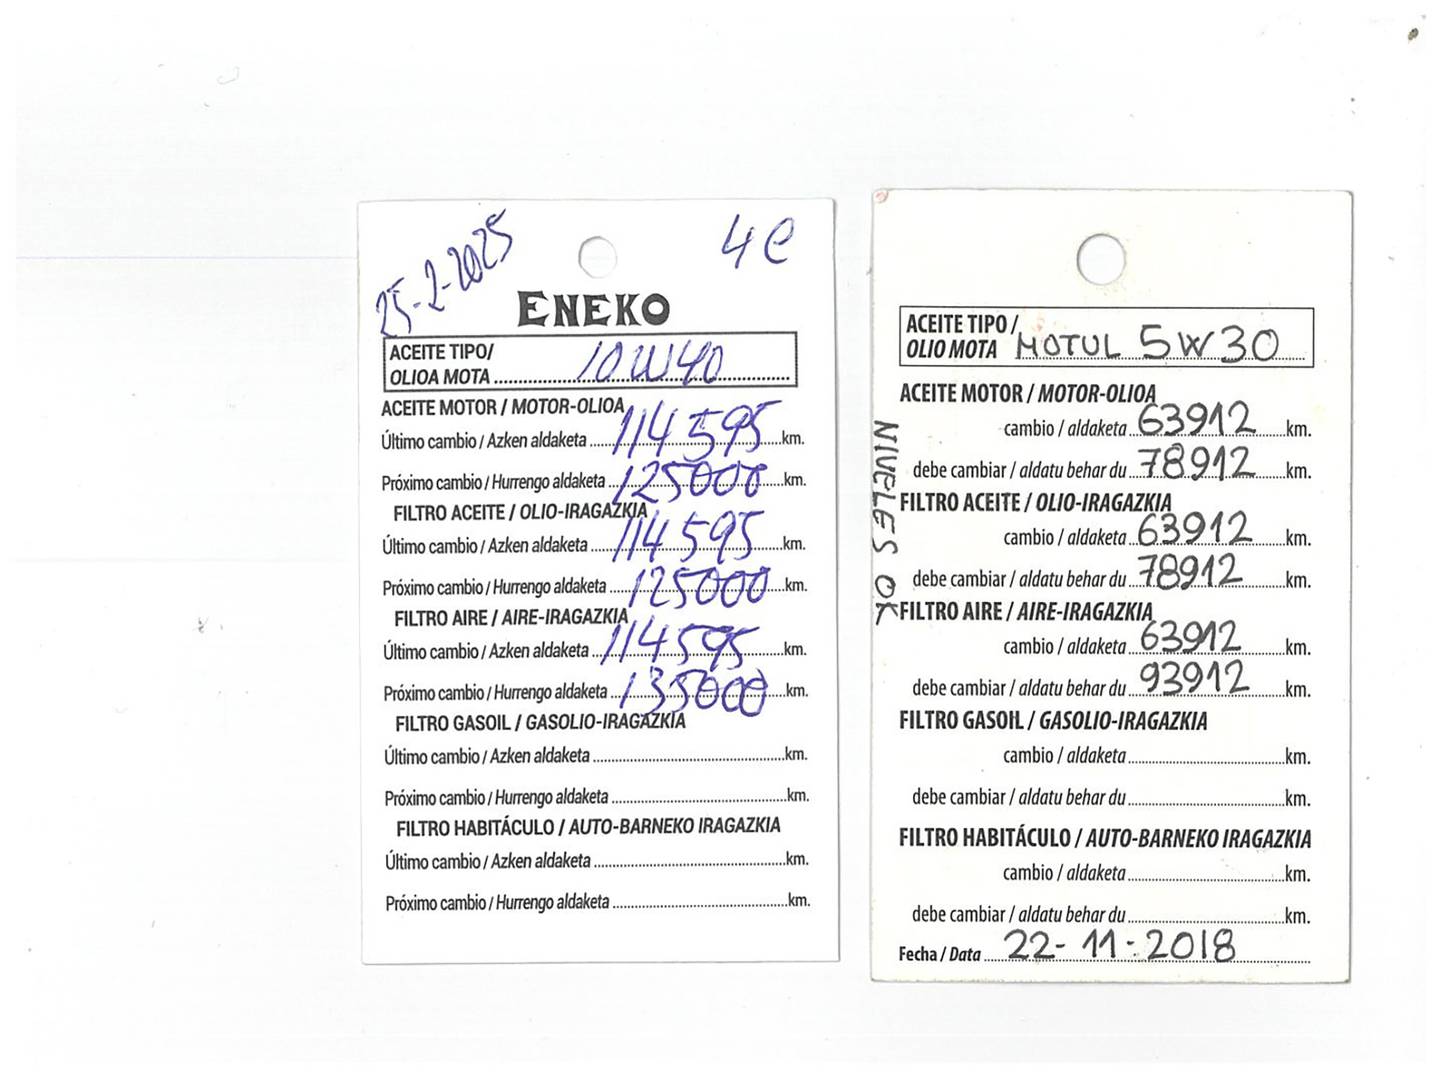 25-2-2025
4 e
ENEKO
ACEITE TIPO/
OLIOA MOTA ........ 10W40
ACEITE MOTOR / MOTOR-OLIOA
Último cambio / Azken aldaketa ..... 114595 ..... km.
Próximo cambio / Hurrengo aldaketa ..... 125000 ..... km.
FILTRO ACEITE / OLIO-IRAGAZKIA
Último cambio / Azken aldaketa ..... 114595 ..... km.
Próximo cambio / Hurrengo aldaketa ..... 125000 ..... km.
FILTRO AIRE / AIRE-IRAGAZKIA
Último cambio / Azken aldaketa ..... 114595 ..... km.
Próximo cambio / Hurrengo aldaketa ..... 135000 ..... km.
FILTRO GASOIL / GASOLIO-IRAGAZKIA
Último cambio / Azken aldaketa ..... km.
Próximo cambio / Hurrengo aldaketa ..... km.
FILTRO HABITÁCULO / AUTO-BARNEKO IRAGAZKIA
Último cambio / Azken aldaketa ..... km.
Próximo cambio / Hurrengo aldaketa ..... km.
ACEITE TIPO /
OLIO MOTA MOTUL 5W30
ACEITE MOTOR / MOTOR-OLIOA
cambio / aldaketa ..... 63912 ..... km.
debe cambiar / aldatu behar du ..... 78912 ..... km.
FILTRO ACEITE / OLIO-IRAGAZKIA
cambio / aldaketa ..... 63912 ..... km.
debe cambiar / aldatu behar du ..... 78912 ..... km.
FILTRO AIRE / AIRE-IRAGAZKIA
cambio / aldaketa ..... 63912 ..... km.
debe cambiar / aldatu behar du ..... 93912 ..... km.
FILTRO GASOIL / GASOLIO-IRAGAZKIA
cambio / aldaketa ..... km.
debe cambiar / aldatu behar du ..... km.
FILTRO HABITÁCULO / AUTO-BARNEKO IRAGAZKIA
cambio / aldaketa ..... km.
debe cambiar / aldatu behar du ..... km.
Fecha / Data ..... 22-11-2018
NIVELES OK